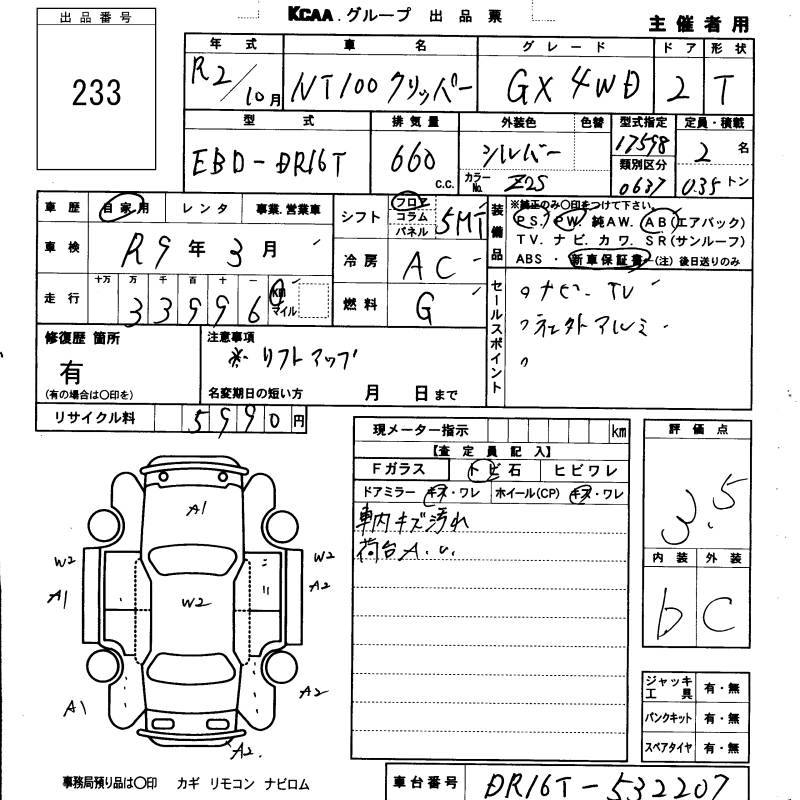 KCAA グループ 出品票
主催者用
出品番号
233
年式 車名 グレード ドア 形状
R2/10月 NT100 クリッパー GX 4WD 2 T
型式 排気量 外装色 色替 型式指定 定員・積載
EBD-DR16T 660 c.c. シルバー 17598 2 名
カラーNo. Z2S 類別区分 0637 0.35 トン
車歴 自家用 レンタ 事業.営業車
車検 R9年3月
走行 十万 万 千 百 十 一
33996 km マイル
シフト フロア コラム パネル 5MT
冷房 AC
燃料 G
装備品
※純正のみ〇印をつけて下さい。
PS. PW. 純AW. AB(エアバック)
TV. ナビ. カワ. SR(サンルーフ)
ABS ・ 新車保証書 (注) 後日送りのみ
セールスポイント
ナビ・TV
社外アルミ
修復歴 箇所
有
(有の場合は〇印を)
注意事項
※ リフトアップ
名変期日の短い方 月 日まで
リサイクル料 5990円
現メーター指示 km
【査定員記入】
Fガラス トビ石 ヒビワレ
ドアミラー キズ・ワレ ホイール(CP) キズ・ワレ
車内キズ汚れ
荷台A.U.
評価点
3.5
内装 外装
b C
A1
W2 W2
A1 W2 A2
A1 A2
A2.
ジャッキ工具 有・無
パンクキット 有・無
スペアタイヤ 有・無
事務局預り品は〇印 カギ リモコン ナビロム
車台番号 DR16T-532207